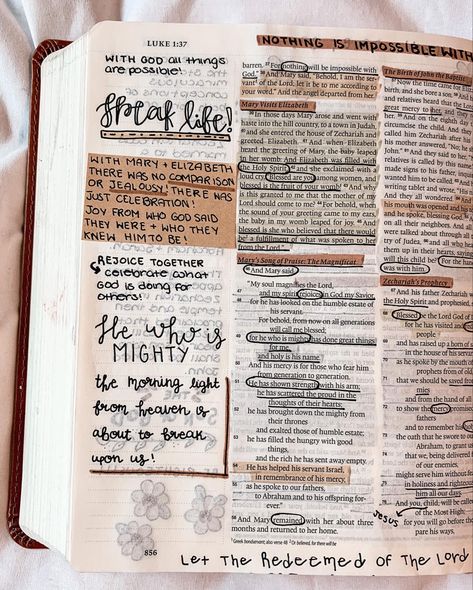 LUKE 1:37
NOTHING IS IMPOSSIBLE WITH
WITH GOD all things
are possible!
Speak life!
WITH MARY + ELIZABETH
THERE WAS NO COMPARISON
OR JEALOUSY! THERE WAS
JUST CELEBRATION!
JOY FROM WHO GOD SAID
THEY WERE + WHO THEY
KNEW HIM TO BE!
REJOICE TOGETHER
celebrate what
GOD is doing for
others!
He who is
MIGHTY
the morning light
from heaven is
about to break
upon us!
856
barren. 37 For nothing will be impossible with
God." 38 And Mary said, "Behold, I am the ser-
vant of the Lord; let it be to me according to
your word." And the angel departed from her.
Mary Visits Elizabeth
39 In those days Mary arose and went with
haste into the hill country, to a town in Judah,
40 and she entered the house of Zechariah and
greeted Elizabeth. 41 And when Elizabeth
heard the greeting of Mary, the baby leaped
in her womb. And Elizabeth was filled with
the Holy Spirit, 42 and she exclaimed with a
loud cry, "Blessed are you among women, and
blessed is the fruit of your womb! 43 And why
is this granted to me that the mother of my
Lord should come to me? 44 For behold, when
the sound of your greeting came to my ears,
the baby in my womb leaped for joy. 45 And
blessed is she who believed that there would
be a fulfillment of what was spoken to her
from the Lord."
Mary's Song of Praise: The Magnificat
46 And Mary said,
"My soul magnifies the Lord,
47 and my spirit rejoices in God my Savior,
48 for he has looked on the humble estate of
his servant.
For behold, from now on all generations
will call me blessed;
49 for he who is mighty has done great things
for me,
and holy is his name.
50 And his mercy is for those who fear him
from generation to generation.
51 He has shown strength with his arm;
he has scattered the proud in the
thoughts of their hearts;
52 he has brought down the mighty from
their thrones
and exalted those of humble estate;
53 he has filled the hungry with good
things,
and the rich he has sent away empty.
54 He has helped his servant Israel,
in remembrance of his mercy,
55 as he spoke to our fathers,
to Abraham and to his offspring for-
ever."
56 And Mary remained with her about three
months and returned to her home.
1 Greek bondservant; also verse 48 2 Or believed, for there will be
The Birth of John the Baptist
Now the time came for Eli
birth, and she bore a son.
and relatives heard that the Lo
great mercy to her, and
And on the eighth day
circumcise the child. And
called him Zechariah after
his mother answered, "No;
And they said to her,
relatives is called by
made signs to his father,
wanted him to be called.
writing tablet and wrote,
And they all wondered.
mouth was opened and h
and he spoke, blessing God
on all their neighbors. And
were talked about through all
try of Judea, and all who
up in their hearts, saying,
will this child be?" For the h
was with him.
Zechariah's Prophecy
And his father Zechariah
the Holy Spirit and prophesied,
Blessed be the Lord God of
for he has visited and
people
and has raised up a horn of
in the house of his serv
as he spoke by the mouth of
prophets from of old,
that we should be saved from
mies
and from the hand of all
to show the mercy promised
and to remember his
the oath that he swore to our
Abraham, to grant us
that we, being delivered
of our enemies,
might serve him without fear
in holiness and righteous
him all our days.
And you, child, will be called
of the Most High;
Jesus
for you will go before the
pare his ways,
Let The Redeemed of The Lord